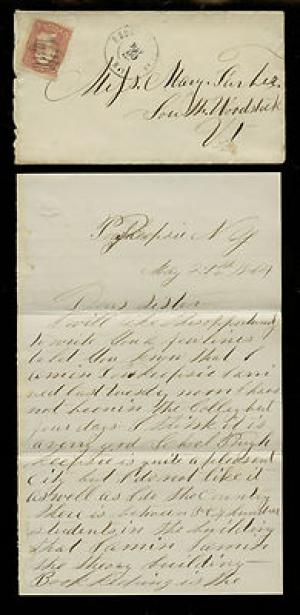 Miss. Mary
South Woodstock
Vt
N Y
May 21st
Dear Sister
I will take this opportunity
to write you a few lines
to let you know that I
am in I arri
ved last tuesday noon I have
not been in the Colleg but
four days I think it is
a very good School Pough
keepsie is quite a pleasant
City but I do not like it
as well as I do the Country
there is between
students in the building
that I am in I am in
the theory building
Book Keeping is the